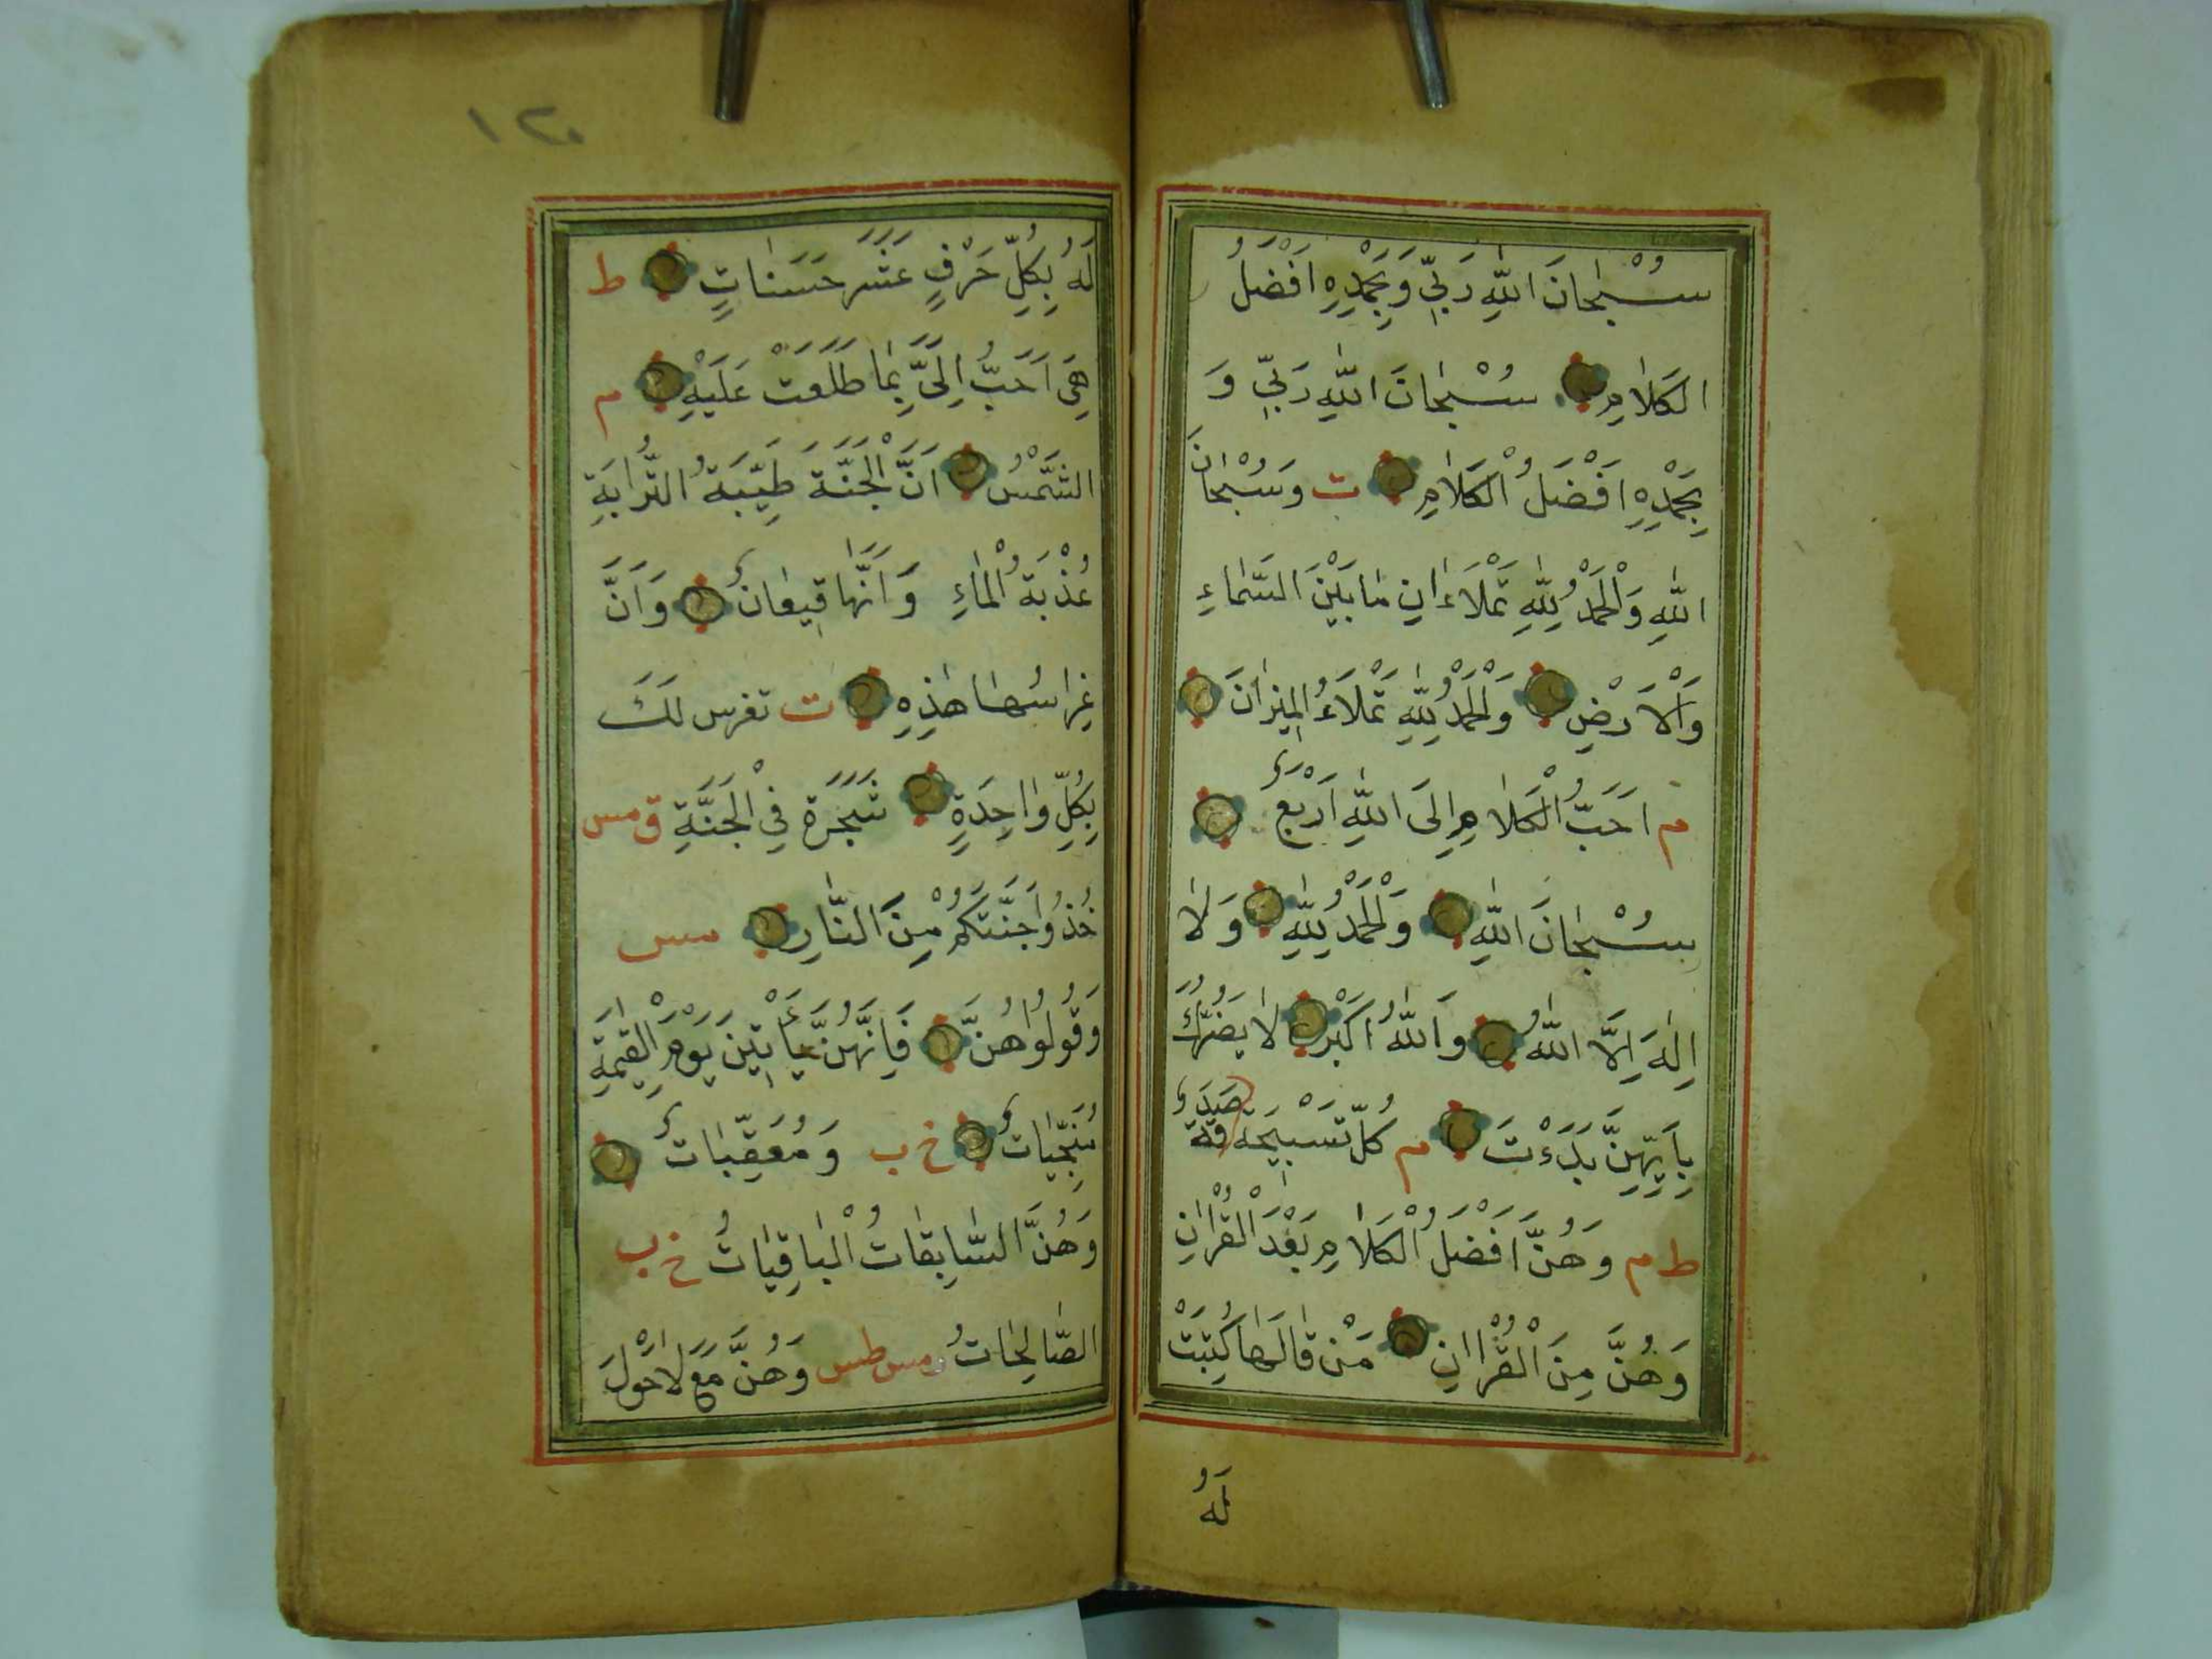 سُبْحانَ اللهِ رَبِّي وَبِحَمْدِهِ اَفْضَلُ
الكَلامِ سُبْحانَ اللهِ رَبِّي وَ
بِحَمْدِهِ اَفْضَلُ الْكَلامِ ت وَسُبْحانَ
اللهِ وَالْحَمْدُ لِلّٰهِ تَمْلَاَءانِ مابَيْنَ السَّماءِ
وَالْاَرْضِ وَالْحَمْدُ لِلّٰهِ تَمْلَاَءُ المِيزانَ
م اَحَبُّ الْكَلامِ اِلَى اللهِ اَرْبَعٌ
سُبْحانَ اللهِ وَالْحَمْدُ لِلّٰهِ وَلا
اِلٰهَ اِلَّا اللهُ وَاللهُ اَكْبَرُ لايَضُرُّكَ
بِاَيِّهِنَّ بَدَءْتَ م كُلّ تَسْبِيحَة صَدَقَةٌ
ط م وَهُنَّ اَفْضَلُ الْكَلامِ بَعْدَ الْقُرْاٰنِ
وَهُنَّ مِنَ الْقُرْاانِ مَنْ قالَها كُتِبَتْ
لَهُ
١٢٠
لَهُ بِكُلِّ حَرْفٍ عَشَر حَسَناتٍ ط
هِيَ اَحَبُّ اِلَىَّ مِمَّا طَلَعَتْ عَلَيْهِ م
الشَّمْسُ اَنَّ الْجَنَّةَ طَيِّبَةُ التُّرابَةِ
عُذْبَةُ الْماءِ وَاَنَّها قِيعانٌ وَاَنَّ
غِراسُها هٰذِهِ ت تغرس لَكَ
بِكُلِّ واحِدَةٍ شَجَرَة فِي الْجَنَّةِ ق مس
خُذُوا جَنَّتَكُمْ مِنَ النَّارِ سس
وَقُولُوا هُنَّ فَاِنَّهُنَّ يَأْتِينَ يَوْمَ الْقِيمَةِ
مُنَجِّياتٌ خ ب وَمُعَقِّباتٌ
وَهُنَّ السَّابِقاتُ الْباقِياتُ خ ب
الصَّالِحاتُ مس طس وَهُنَّ مَعَ لاحَوْلَ